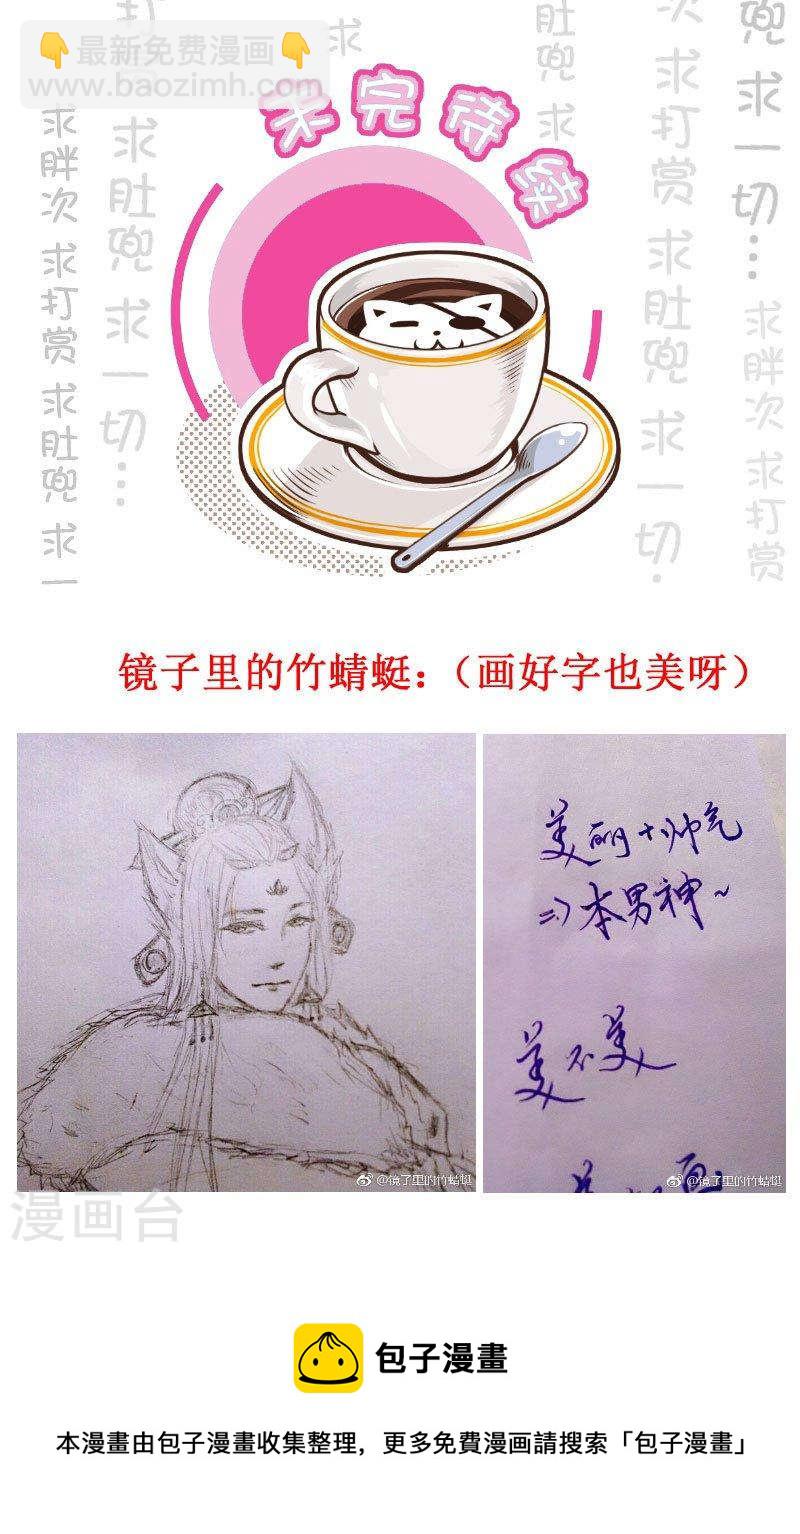 👇最新免费漫画👇
www.baozimh.com
未完待续
求胖次 求打赏 求肚兜 求一
求肚兜 求一切…
求
肚兜 求
次 求打赏 求肚兜 求一切.
兜 求一切…
求胖次 求打赏
镜子里的竹蜻蜓：（画好字也美呀）
美丽+帅气
=>本男神~
美不美
@镜子里的竹蜻蜓
@镜子里的竹蜻蜓
漫画台
包子漫畫
本漫畫由包子漫畫收集整理，更多免費漫画請搜索「包子漫畫」